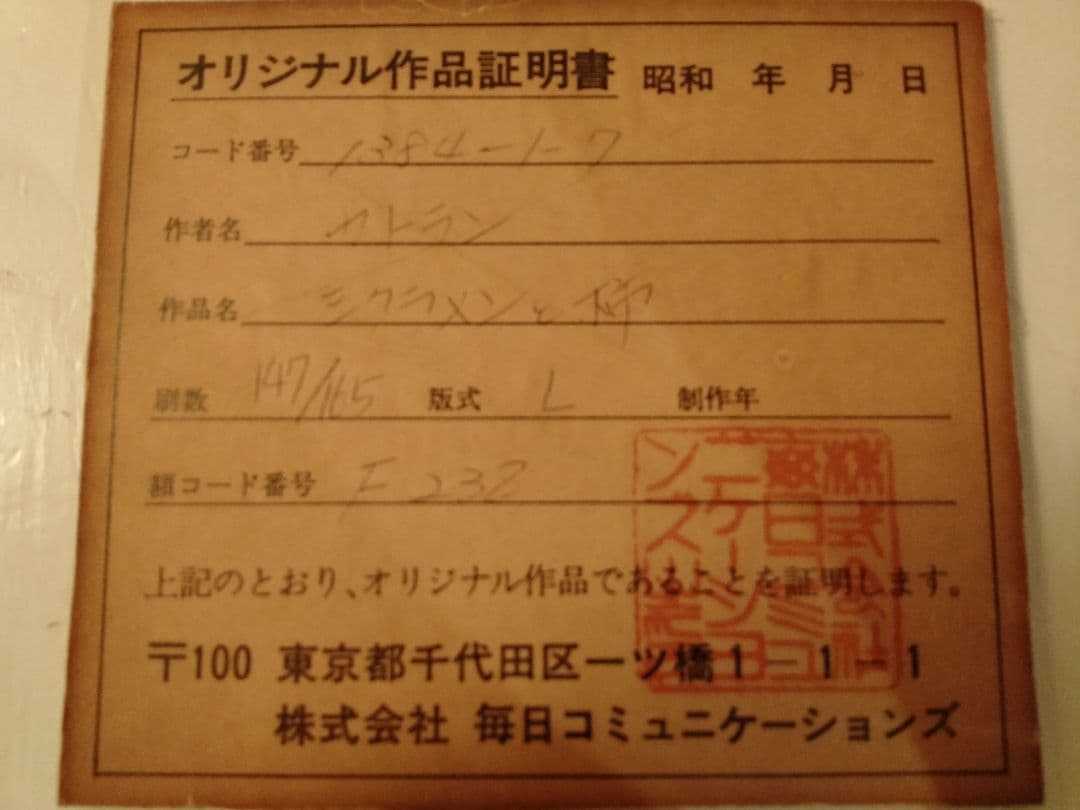 オリジナル作品証明書 昭和 年 月 日
コード番号 1384-1-7
作者名 カトラン
作品名 シクラメンと柿
刷数 147/165 版式 L 制作年
額コード番号 F 237
上記のとおり、オリジナル作品であることを証明します。
〒100 東京都千代田区一ツ橋1-1-1
株式会社 毎日コミュニケーションズ